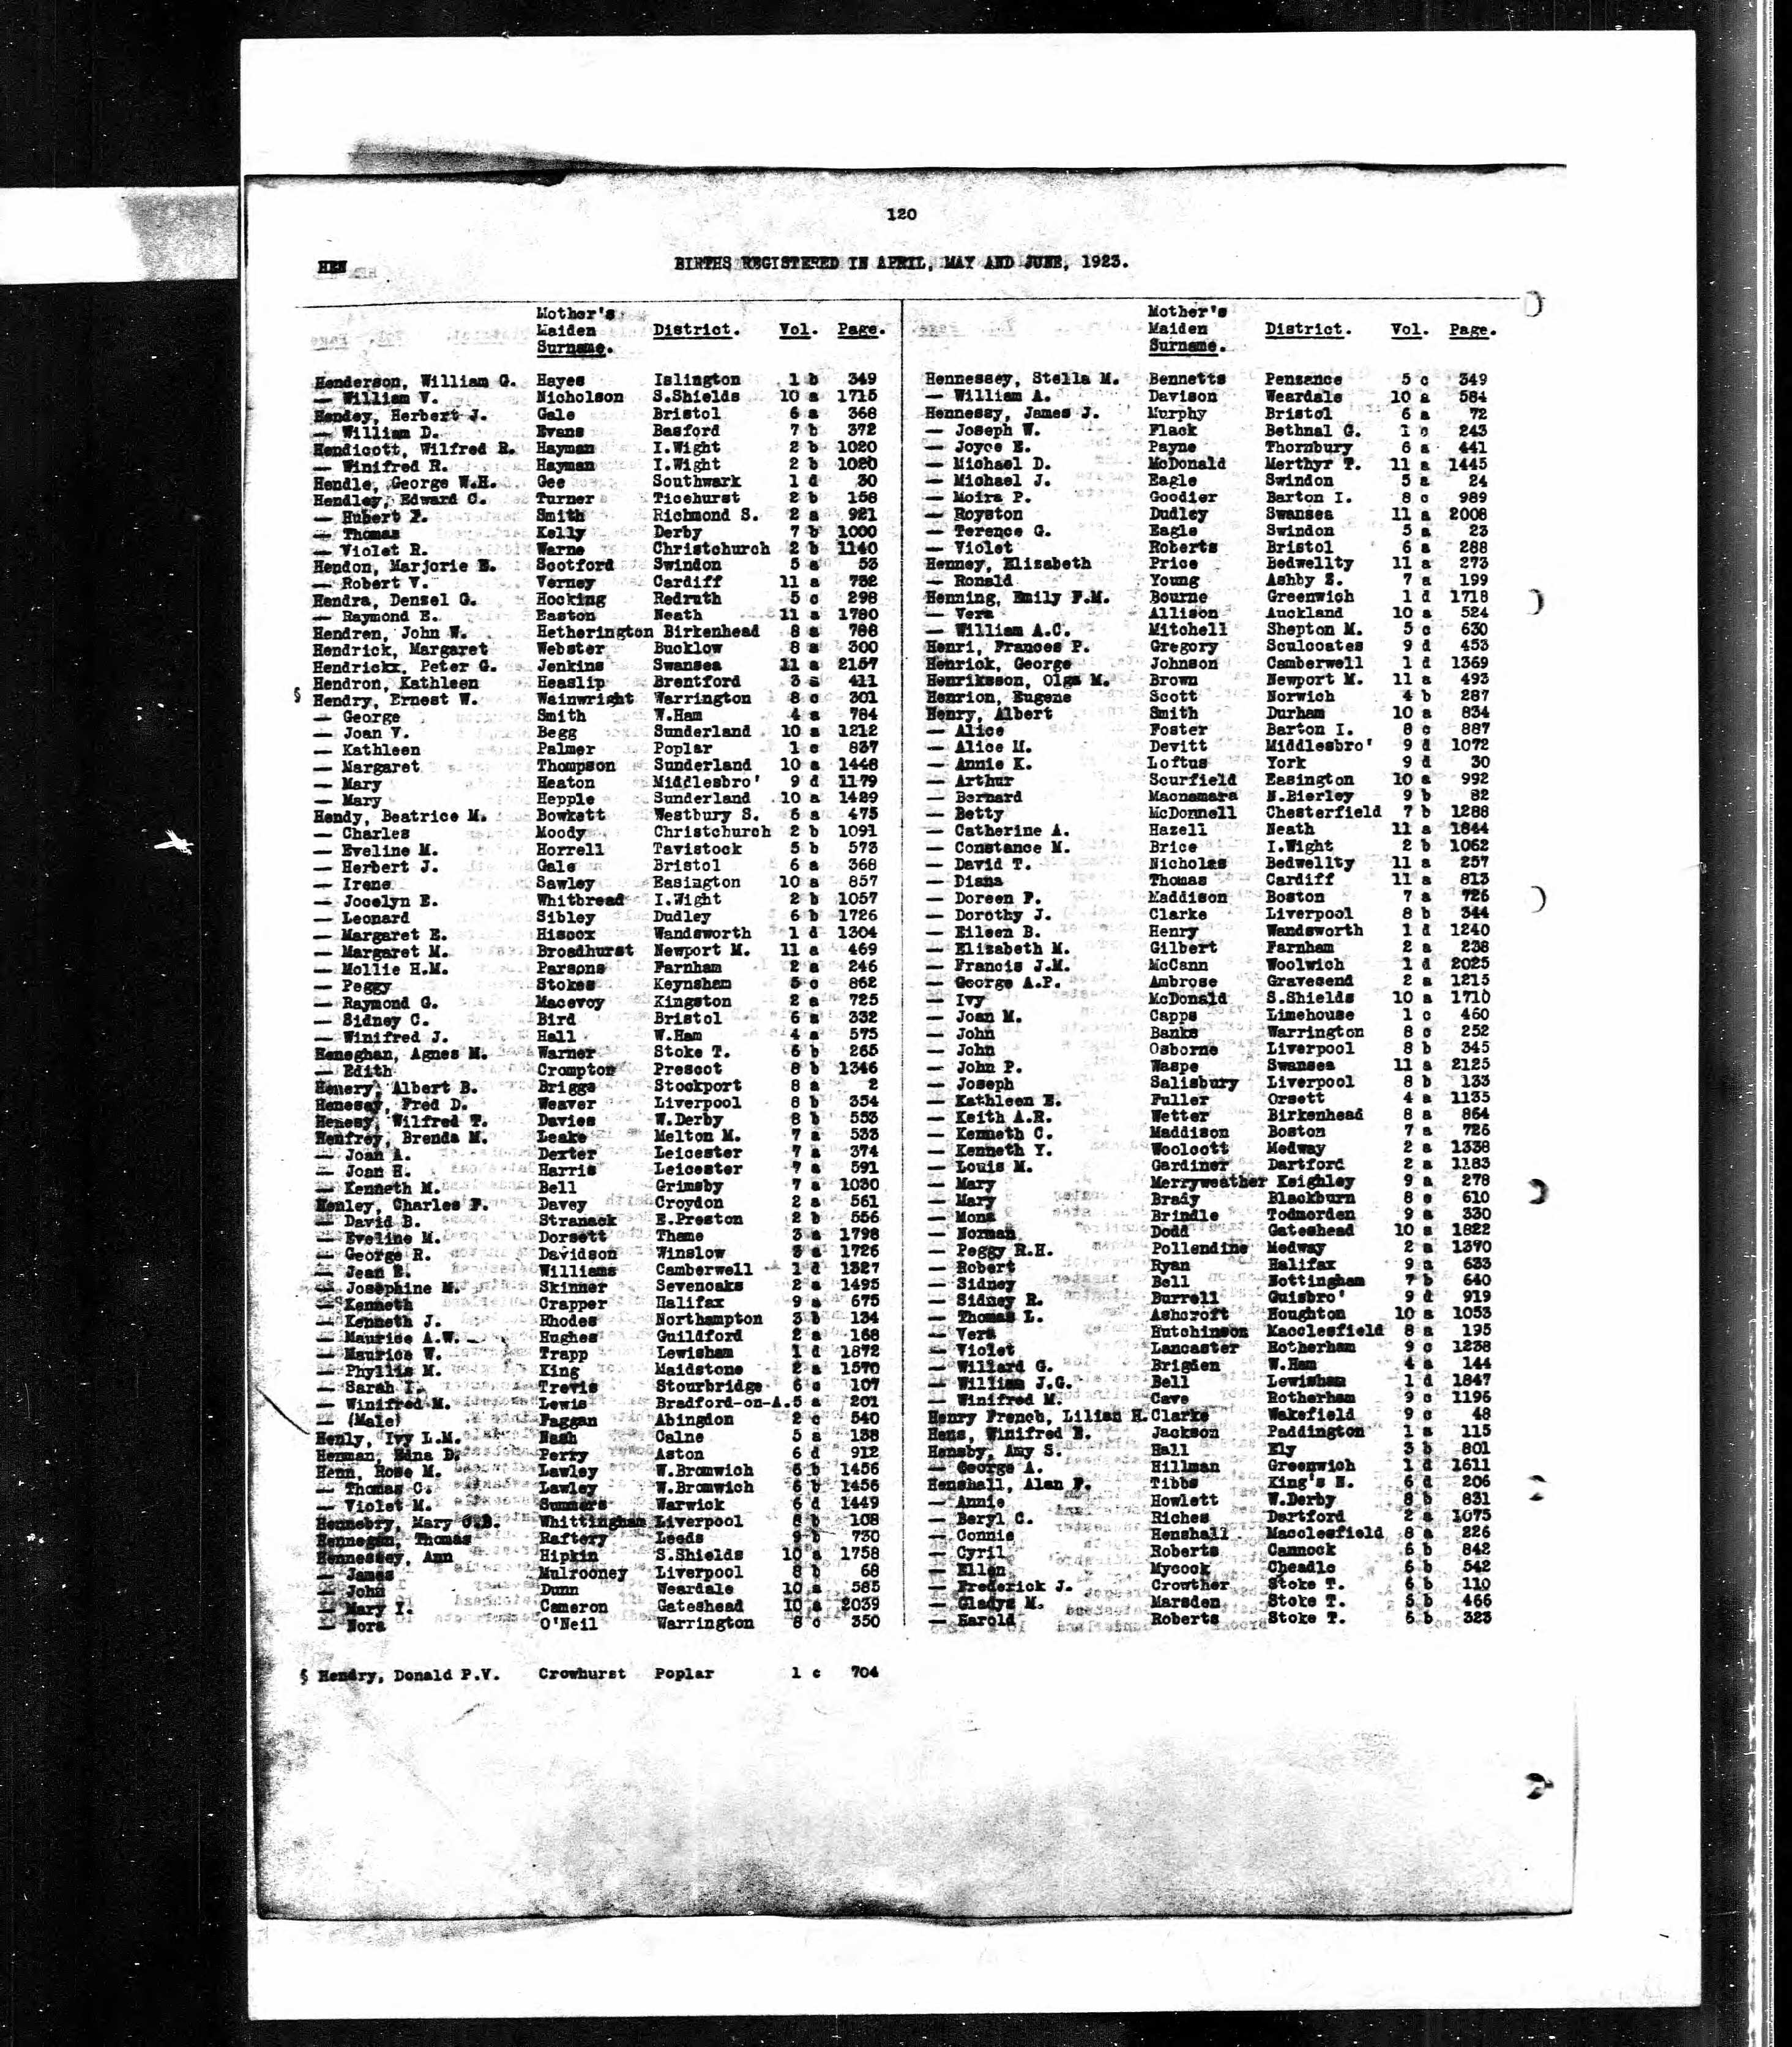 120
HEN
BIRTHS REGISTERED IN APRIL, MAY AND JUNE, 1923.
Mother's Maiden Surname. District. Vol. Page.
Henderson, William G. Hayes Islington 1 b 349
— William V. Nicholson S.Shields 10 a 1715
Hendey, Herbert J. Gale Bristol 6 a 368
— William D. Evans Basford 7 b 372
Hendicott, Wilfred R. Hayman I.Wight 2 b 1020
— Winifred R. Hayman I.Wight 2 b 1020
Hendle, George W.H. Gee Southwark 1 d 30
Hendley, Edward C. Turner Ticehurst 2 b 158
— Hubert F. Smith Richmond S. 2 a 921
— Thomas Kelly Derby 7 b 1000
— Violet R. Warne Christchurch 2 b 1140
Hendon, Marjorie E. Scotford Swindon 5 a 53
— Robert V. Verney Cardiff 11 a 732
Hendra, Denzel G. Hocking Redruth 5 c 298
— Raymond E. Easton Neath 11 a 1780
Hendren, John W. Hetherington Birkenhead 8 a 788
Hendrick, Margaret Webster Bucklow 8 a 300
Hendrickx, Peter G. Jenkins Swansea 11 a 2157
Hendron, Kathleen Heaslip Brentford 3 a 411
§ Hendry, Ernest W. Wainwright Warrington 8 c 301
— George Smith W.Ham 4 a 784
— Joan V. Begg Sunderland 10 a 1212
— Kathleen Palmer Poplar 1 c 837
— Margaret Thompson Sunderland 10 a 1448
— Mary Heaton Middlesbro' 9 d 1179
— Mary Hepple Sunderland 10 a 1429
Hendy, Beatrice M. Bowkett Westbury S. 6 a 475
— Charles Moody Christchurch 2 b 1091
— Eveline M. Horrell Tavistock 5 b 573
— Herbert J. Gale Bristol 6 a 368
— Irene Sawley Easington 10 a 857
— Jocelyn E. Whitbread I.Wight 2 b 1057
— Leonard Sibley Dudley 6 b 1726
— Margaret E. Hiscox Wandsworth 1 d 1304
— Margaret M. Broadhurst Newport M. 11 a 469
— Mollie H.M. Parsons Farnham 2 a 246
— Peggy Stokes Keynsham 5 c 862
— Raymond G. Macevoy Kingston 2 a 725
— Sidney C. Bird Bristol 6 a 332
— Winifred J. Hall W.Ham 4 a 575
Heneghan, Agnes M. Warner Stoke T. 6 b 265
— Edith Crompton Prescot 8 b 1346
Henery, Albert B. Briggs Stockport 8 a 2
Henesey, Fred D. Weaver Liverpool 8 b 354
Henesy, Wilfred T. Davies W.Derby 8 b 553
Henfrey, Brenda M. Leake Melton M. 7 a 533
— Joan A. Dexter Leicester 7 a 374
— Joan H. Harris Leicester 7 a 591
— Kenneth M. Bell Grimsby 7 a 1030
Henley, Charles F. Davey Croydon 2 a 561
— David B. Stranack E.Preston 2 b 556
— Eveline M. Dorsett Thame 3 a 1798
— George R. Davidson Winslow 3 a 1726
— Jean E. Williams Camberwell 1 d 1327
— Josephine M. Skinner Sevenoaks 2 a 1495
— Kenneth Crapper Halifax 9 a 675
— Kenneth J. Rhodes Northampton 3 b 134
— Maurice A.W. Hughes Guildford 2 a 168
— Maurice W. Trapp Lewisham 1 d 1872
— Phyllis M. King Maidstone 2 a 1570
— Sarah I. Trevis Stourbridge 6 c 107
— Winifred M. Lewis Bradford-on-A. 5 a 201
— (Male) Faggan Abingdon 2 c 540
Henly, Ivy L.M. Nash Calne 5 a 138
Henman, Edna D. Perry Aston 6 d 912
Henn, Rose M. Lawley W.Bromwich 6 b 1456
— Thomas C. Lawley W.Bromwich 6 b 1456
— Violet M. Summers Warwick 6 d 1449
Hennebry, Mary C.B. Whittingham Liverpool 8 b 108
Hennegan, Thomas Raftery Leeds 9 b 730
Hennessey, Ann Hipkin S.Shields 10 a 1758
— James Mulrooney Liverpool 8 b 68
— John Dunn Weardale 10 a 585
— Mary I. Cameron Gateshead 10 a 2039
— Nora O'Neil Warrington 8 c 350
§ Hendry, Donald P.V. Crowhurst Poplar 1 c 704
Mother's Maiden Surname. District. Vol. Page.
Hennessey, Stella M. Bennetts Penzance 5 c 349
— William A. Davison Weardale 10 a 584
Hennessy, James J. Murphy Bristol 6 a 72
— Joseph W. Flack Bethnal G. 1 c 243
— Joyce E. Payne Thornbury 6 a 441
— Michael D. McDonald Merthyr T. 11 a 1445
— Michael J. Eagle Swindon 5 a 24
— Moira P. Goodier Barton I. 8 c 989
— Royston Dudley Swansea 11 a 2008
— Terence G. Eagle Swindon 5 a 23
— Violet Roberts Bristol 6 a 288
Henney, Elizabeth Price Bedwellty 11 a 273
— Ronald Young Ashby Z. 7 a 199
Henning, Emily F.M. Bourne Greenwich 1 d 1718
— Vera Allison Auckland 10 a 524
— William A.C. Mitchell Shepton M. 5 c 630
Henri, Frances P. Gregory Sculcoates 9 d 453
Henrick, George Johnson Camberwell 1 d 1369
Henriksson, Olga M. Brown Newport M. 11 a 493
Henrion, Eugene Scott Norwich 4 b 287
Henry, Albert Smith Durham 10 a 834
— Alice Foster Barton I. 8 c 887
— Alice M. Devitt Middlesbro' 9 d 1072
— Annie K. Loftus York 9 d 30
— Arthur Scurfield Easington 10 a 992
— Bernard Macnamara N.Bierley 9 b 82
— Betty McDonnell Chesterfield 7 b 1288
— Catherine A. Hazell Neath 11 a 1844
— Constance M. Brice I.Wight 2 b 1062
— David T. Nicholas Bedwellty 11 a 257
— Diana Thomas Cardiff 11 a 813
— Doreen P. Maddison Boston 7 a 726
— Dorothy J. Clarke Liverpool 8 b 344
— Eileen B. Henry Wandsworth 1 d 1240
— Elizabeth M. Gilbert Farnham 2 a 238
— Francis J.M. McCann Woolwich 1 d 2025
— George A.P. Ambrose Gravesend 2 a 1215
— Ivy McDonald S.Shields 10 a 1710
— Joan M. Capps Limehouse 1 c 460
— John Banks Warrington 8 c 252
— John Osborne Liverpool 8 b 345
— John P. Waspe Swansea 11 a 2125
— Joseph Salisbury Liverpool 8 b 133
— Kathleen E. Fuller Orsett 4 a 1135
— Keith A.R. Wetter Birkenhead 8 a 864
— Kenneth C. Maddison Boston 7 a 726
— Kenneth Y. Woolcott Medway 2 a 1338
— Louis M. Gardiner Dartford 2 a 1183
— Mary Merryweather Keighley 9 a 278
— Mary Brady Blackburn 8 e 610
— Mona Brindle Todmorden 9 a 330
— Norman Dodd Gateshead 10 a 1822
— Peggy R.H. Pollendine Medway 2 a 1370
— Robert Ryan Halifax 9 a 633
— Sidney Bell Nottingham 7 b 640
— Sidney R. Burrell Guisbro' 9 d 919
— Thomas L. Ashcroft Houghton 10 a 1053
— Vera Hutchinson Macclesfield 8 a 195
— Violet Lancaster Rotherham 9 c 1238
— Willard G. Brigden W.Ham 4 a 144
— William J.G. Bell Lewisham 1 d 1847
— Winifred M. Cave Rotherham 9 c 1196
Henry French, Lilian H. Clarke Wakefield 9 c 48
Hens, Winifred E. Jackson Paddington 1 a 115
Hensby, Amy S. Hall Ely 3 b 801
— George A. Hillman Greenwich 1 d 1611
Henshall, Alan F. Tibbs King's N. 6 d 206
— Annie Howlett W.Derby 8 b 831
— Beryl C. Riches Dartford 2 a 1075
— Connie Henshall Macclesfield 8 a 226
— Cyril Roberts Cannock 6 b 842
— Ellen Mycock Cheadle 6 b 542
— Frederick J. Crowther Stoke T. 6 b 110
— Gladys M. Marsden Stoke T. 6 b 466
— Harold Roberts Stoke T. 6 b 323